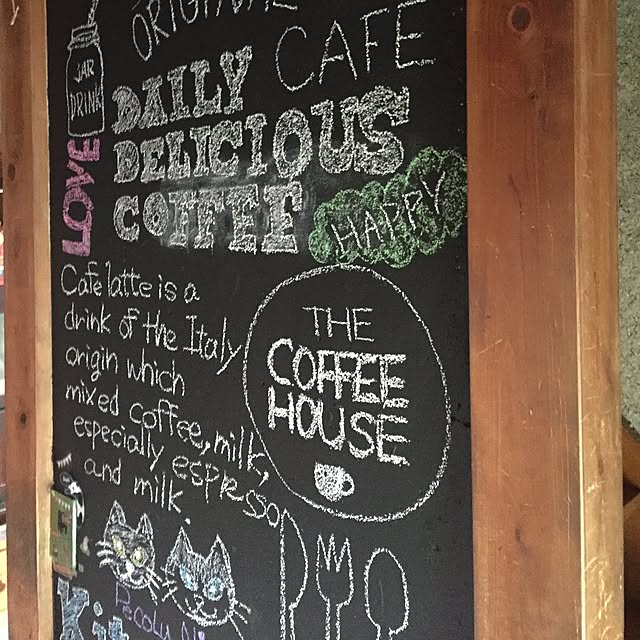 ORIGINAL
CAFE
JAR
DRINK
DAILY
DELICIOUS
COFFEE
LOVE
HAPPY
Cafe latte is a
drink of the Italy
origin which
mixed coffee, milk,
especially espresso
and milk.
THE
COFFEE
HOUSE